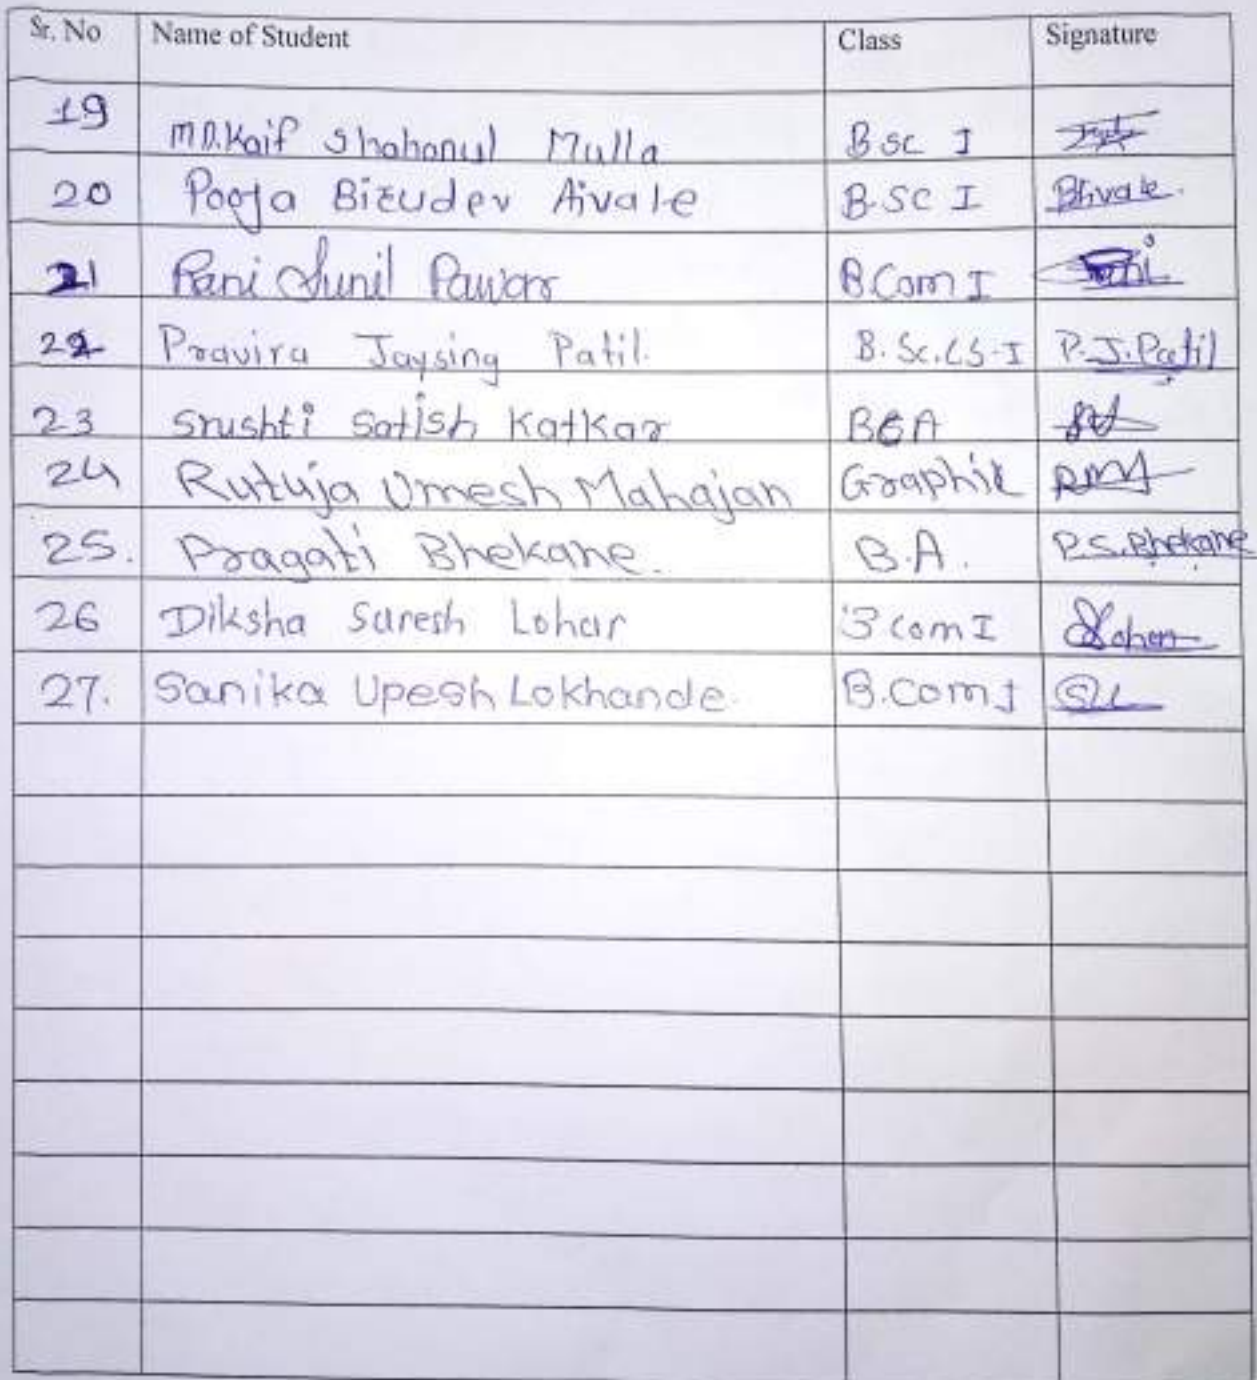 Sr. No Name of Student Class Signature
19 MD.Kaif Shahanul Mulla B.sc I
20 Pooja Birudev Aivale B.SC I BAivale.
21 Rani Sunil Pawar B.Com I
22 Pravira Jaysing Patil. B.Sc.CS-I P.J.Patil
23 Srushti Satish Katkar BCA
24 Rutuja Umesh Mahajan Graphic RMM
25. Pragati Bhekane. B.A. P.S.Bhekane
26 Diksha Suresh Lohar B com I Lohar
27. Sanika Upesh Lokhande. B.Com I SUL